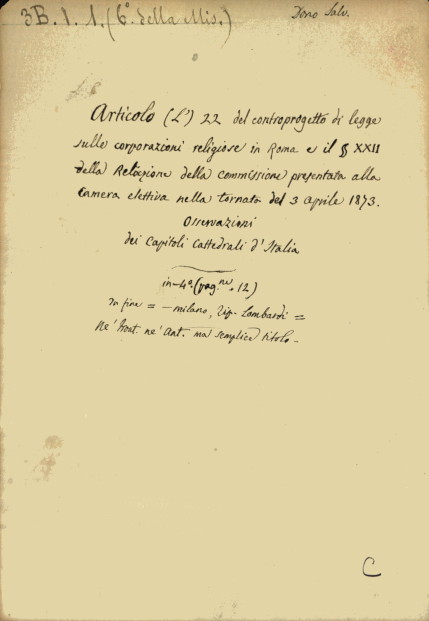 3B. 1. 1. (6° della Mis.)
Dono Salv.
Articolo (L') 22 del controprogetto di legge
sulle corporazioni religiose in Roma e il § XXII
della Relazione della commissione presentata alla
Camera elettiva nella tornata del 3 aprile 1873.
Osservazioni
dei Capitoli Cattedrali d'Italia
in-4° (pag.ne 12)
In fine = - Milano, Tip. Lombardi =
Né front. né ant. ma semplice titolo -
C